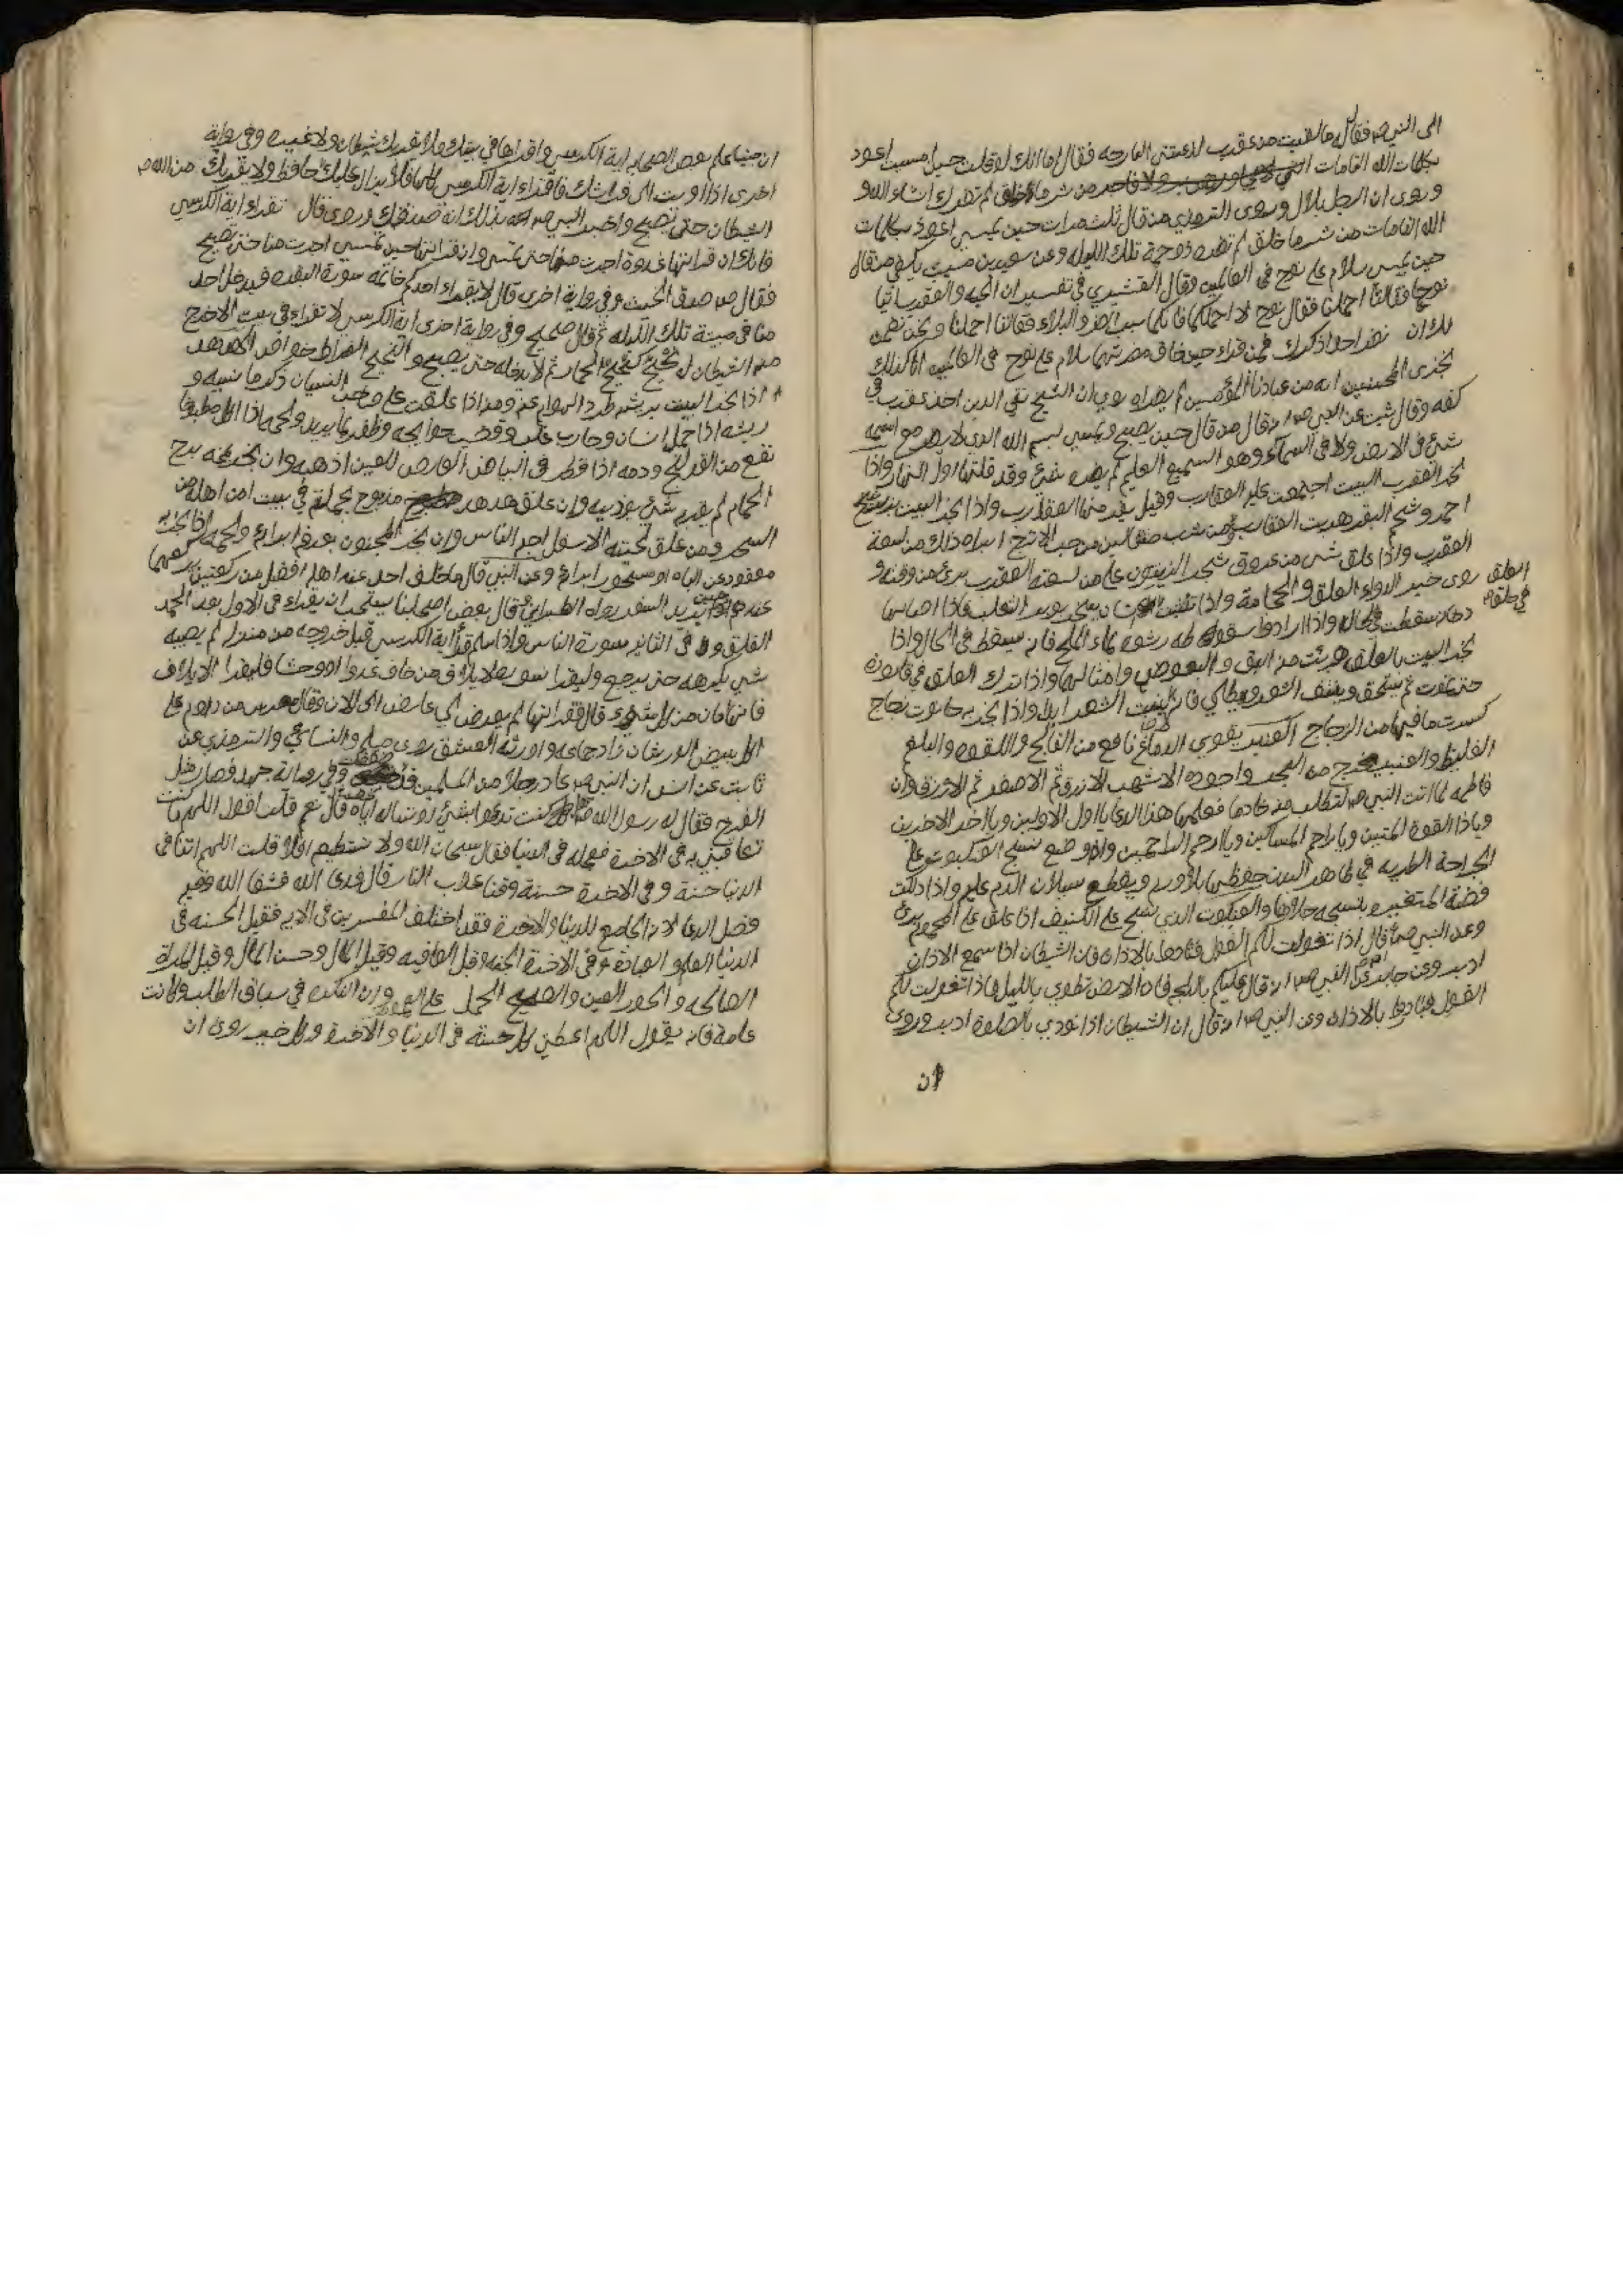 الى النبي صم فقال ما لقيت من عقرب لدغتني البارحه فقال اما انك لو قلت حين امسيت اعوذ
بكلمات الله التامات من شر ما خلق لم تضرك ان شاء الله و
وروى ان الرجل بلال وروى الترمذي من قال ثلث مرات حين يمسي اعوذ بكلمات
الله التامات من شر ما خلق لم تضره ذو حمة تلك الليله وعن سعيد بن مسيب بلغني من قال
حين يمسي سلام على نوح في العالمين وقال القشيري في تفسيره ان الحيه والعقرب اتيا
نوحا فقالتا احملنا فقال نوح لا احملكما فانكما سبب الضر والبلاء فقالتا احملنا ونحن نضمن
لك ان نضر احدا ذكرك فمن قراء حين خاف مضرتهما سلام على نوح في العالمين انا كذلك
نجزي المحسنين انه من عبادنا المؤمنين لم يضراه روى ان الشيخ تقي الدين اخذ عقرب في
كفه وقال عن النبي صم انه قال من قال حين يصبح ويمسي بسم الله الذي لا يضر مع اسمه
شئ في الارض ولا في السماء وهو السميع العليم لم يضره شئ وقد قلتها اول النهار واذا
بخر العقرب البيت اجتمعت عليه العقارب وقيل يفر منها العقارب واذا بخر البيت بزرنيخ
احمر وشحم البقر هربت العقارب ومن شرب مثقالين من حب الاترج ابراه ذلك من لسعة
العقرب واذا علق شئ من عروق شجر الزيتون على من لسعته العقرب برئ من وقته و
روى خير الدواء العلق والحجامة واذا
العلق في حلقه
دخانه سقطت في الحال واذا ارادوا سقوطه رشوه بماء الملح فانه يسقط في الحال واذا
بخر البيت بالعلق هربت من البق والبعوض وامثالهما واذا ترك العلق في قارورة
حتى يموت ثم يسحق وينتف الشعر ويطلي فانه لا ينبت الشعر ابدا واذا بخر به حانوت زجاج
كسرت ما فيها من الزجاج العنبر يقوي الدماغ نافع من الفالج واللقوه والبلغم
الغليظ والعنبر يخرج من البحر واجوده الاشهب الازرق ثم الاصفر ثم الازرق وان
فاطمه لما اتت النبي صم لتطلب منه خادما فعلمها هذا الدعا يا اول الاولين ويا اخر الاخرين
ويا ذا القوة المتين ويا راحم المساكين ويا ارحم الراحمين واذا وضع نسج العنكبوت على
الجراحة الطريه في ظاهر البدن حفظها بلا ورم ويقطع سيلان الدم عليه واذا دلكت
فضة المتغيره بنسجه جلاها والعنكبوت الذي نسج على الكنيف اذا علق على المحموم برئ
وعن النبي صم قال اذا تغولت لكم الغول فنادوها بالاذان فان الشيطان اذا سمع الاذان
ادبر وعن جابر عن النبي صم انه قال عليكم بالدلجه فان الارض تطوى بالليل فاذا تغولت لكم
الغول فبادروا بالاذان وعن النبي صم انه قال ان الشيطان اذا نودي بالصلوة ادبر وروى
ان
ان جنيا علم بعض الصحابه اية الكرسي واقراها في بيتك فلا يقربك شيطان ولا غيره وفي رواية
اخرى اذا اويت الى فراشك فاقراء اية الكرسي كلها فانه لا يزال عليك من الله حافظ ولا يقربك
الشيطان حتى تصبح واخبر النبي صم بذلك انه صدقك وروى قال تقراء اية الكرسي
فانك ان قراتها غدوة اجرت منا حتى تمسي وان قراتها حين تمسي اجرت منا حتى تصبح
فقال صم صدق الخبيث وفي رواية اخرى قال لا يقراء احدكم خاتمة سورة البقره فيدخل احد
منا في مبيته تلك الليله ثم قال صحيح وفي رواية اخرى اية الكرسي لا تقراء في بيت الا خرج
منه الشيطان له خبيج كخبيج الحمار ثم لا يدخله حتى يصبح والخبيج الضراط خواص الهدهد
اذا بخر البيت بريشه طرد الهوام عنه واذا علقت على صاحب النسيان ذكر ما نسيه و
ريشه اذا حمله انسان وحارب غلب وقضيت حوايجه وظفر بما يريد ولحمه اذا اكل مطبوخا
نفع من القولنج ودمه اذا قطر في البياض العارض للعين اذهبه وان بخر بمخه برج
الحمام لم يقربه شئ يؤذيه وان علق هدهد مذبوح بجملته في بيت امن اهله من
السحر ومن علق لحيته الاسفل احبه الناس وان بخر المجنون بعرفه ابراه ولحمه اذا بخر به
معقود عن الباه او مسحور ابراه وعن النبي قال ما خلف احد عند اهله افضل من ركعتين يركعهما
عندهم حين يريد السفر رواه الطبراني قال بعض اصحابنا يستحب ان يقراء في الاول بعد الحمد
الفلق وفي الثانيه سورة الناس واذا سلم قرأ اية الكرسي قبل خروجه من منزله لم يصبه
شي يكرهه حتى يرجع وليقرا سورة لايلاف من خاف عدوا او وحشا فليقرا لايلاف
فانها امان من كل سوء قال فقراتها لم يعرض لي عارض الى الان وقال من داوم على
اكل بيض الورشان زاد جماعه واورثه العشق روى مسلم والنسائي والترمذي عن
ثابت عن انس ان النبي صم عاد رجلا من المسلمين قد خفت وفي رواية جهد فصار مثل
الفرخ فقال له رسول الله صم هل كنت تدعو بشئ او تساله اياه قال نعم قلت اقول اللهم ما كنت
تعاقبني به في الاخرة فعجله في الدنيا فقال سبحان الله ولا تستطيعه افلا قلت اللهم اتنا في
الدنيا حسنة وفي الاخرة حسنة وقنا عذاب النار قال فدعى الله فشفاه الله وفي
فضل الدعا لانه الجامع للدنيا والاخرة فقد اختلف المفسرين في الايه فقيل الحسنه في
الدنيا العلم والعبادة وفي الاخرة الجنه وقيل العافيه وقيل المال وحسن المال وقيل المراة
الصالحه والحور العين والصحيح الحمل على العموم وان النكره في سياق الطلب كانت
عامة فانه يقول اللهم اعطني كل حسنة في الدنيا والاخرة وكل خير روى ان